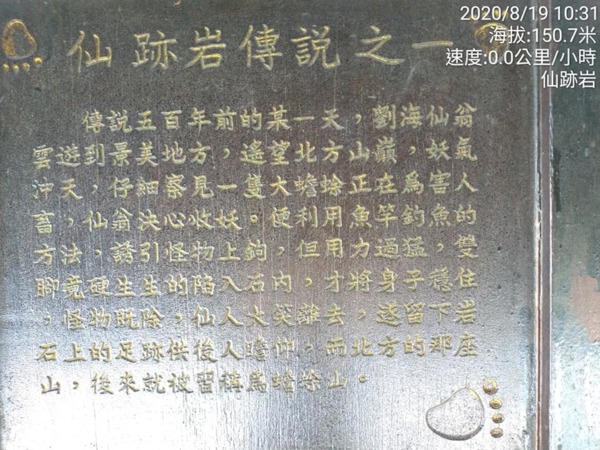 2020/8/19 10:31
海拔:150.7米
速度:0.0公里/小時
仙跡岩
仙跡岩傳説之一
傳説五百年前的某一天，劉海仙翁
雲遊到景美地方，遙望北方山嶺，妖氣
沖天，仔細察見一隻大蟾蜍正在為害人
畜，仙翁決心收妖。便利用魚竿釣魚的
方法，誘引怪物上鉤，但用力過猛，雙
腳竟硬生生的陷入石內，才將身子穩住
，怪物既除，仙人大笑離去，遂留下岩
石上的足跡供後人瞻仰，而北方的那座
山，後來就被習稱為蟾蜍山。